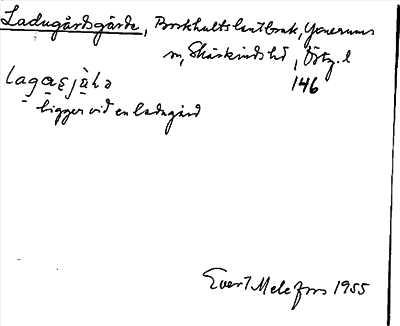 Ladugårdsgärde, Borkhults lantbruk, Yxnerums
sn, Skärkinds hd, Östg. l
146
lagasjàlə
ligger vid en ladugård
Evert Melefors 1955